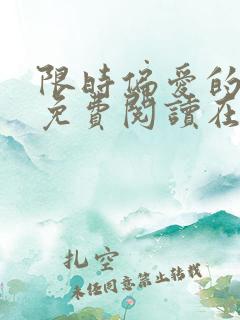 限時偏愛的
免費閱讀在
扎空
未经同意禁止转载